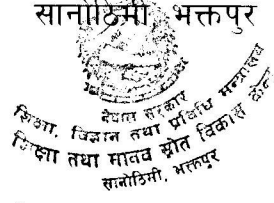 सानोठिमी भक्तपुर
नेपाल सरकार
शिक्षा, विज्ञान तथा प्रविधि मन्त्रालय
शिक्षा तथा मानव स्रोत विकास केन्द्र
सानोठिमी, भक्तपुर